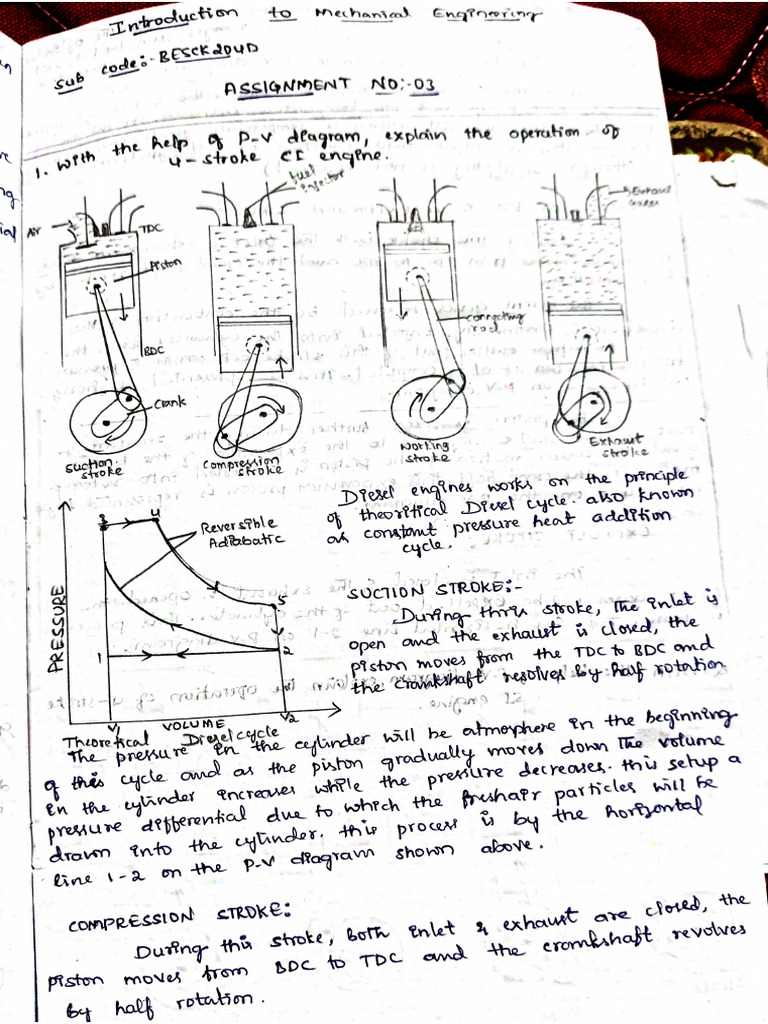 Introduction to Mechanical Engineering
Sub code:- BESCK204D
ASSIGNMENT NO:-03
1. With the help of P-V diagram, explain the operation of
4-stroke CI engine.
fuel
injector
Exhaust
Gases
Air
TDC
Piston
BDC
Crank
connecting
rod
Suction
stroke
Compression
stroke
Working
stroke
Exhaust
stroke
Diesel engines works on the principle
of theoritical Diesel cycle. also known
as constant pressure heat addition
cycle.
3
4
Reversible
Adiabatic
5
1
2
PRESSURE
V1
VOLUME
V2
Theoretical Diesel cycle
SUCTION STROKE:-
During this stroke, The inlet is
open and the exhaust is closed, the
piston moves from the TDC to BDC and
the crankshaft resolves by half rotation
The pressure in the cylinder will be atmosphere in the beginning
of this cycle and as the piston gradually moves down The volume
in the cylinder increases while the pressure decreases. this setup a
pressure differential due to which the freshair particles will be
drawn into the cylinder. this process is by the horizontal
line 1-2 on the P-V diagram shown above.
COMPRESSION STROKE:
During this stroke, Both inlet & exhaust are closed, the
piston moves from BDC to TDC and the crankshaft revolves
by half rotation.